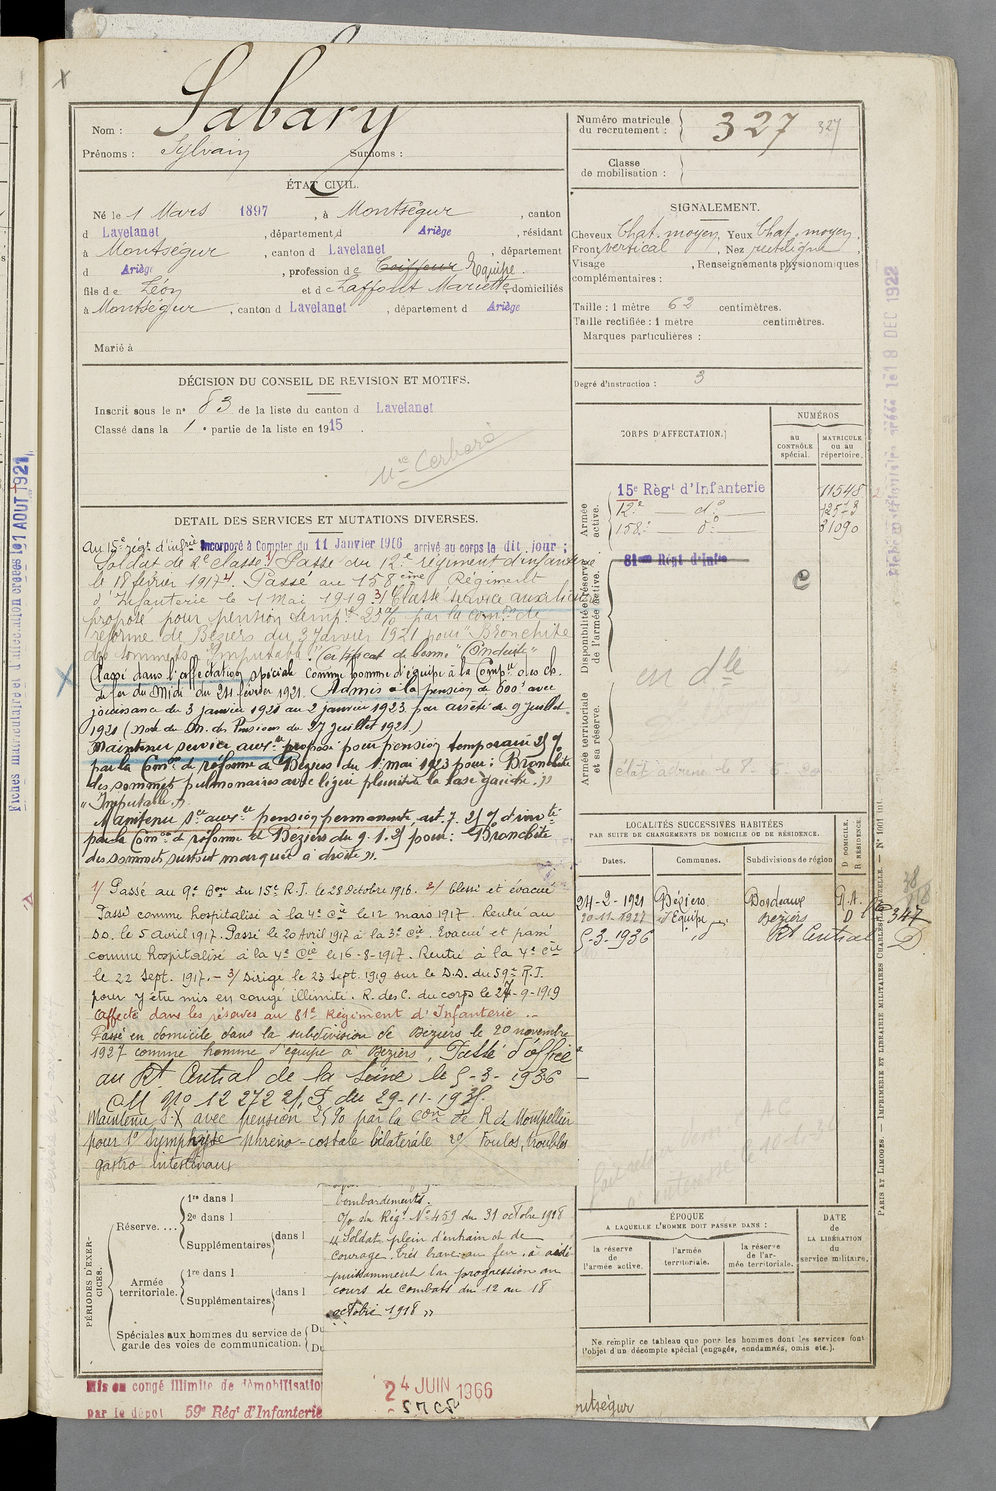 Nom : Sabary
Prénoms : Sylvain Surnoms :
ÉTAT CIVIL.
Né le 1 Mars 1897, à Montségur, canton
d Lavelanet, département d Ariège, résidant
à Montségur, canton d Lavelanet, département
d Ariège, profession de Coiffeur Equipe.
fils de Léon et de Laffont Mariette, domiciliés
à Montségur, canton d Lavelanet, département d Ariège
Marié à
DÉCISION DU CONSEIL DE REVISION ET MOTIFS.
Inscrit sous le n° 83 de la liste du canton d Lavelanet
Classé dans la 1e partie de la liste en 1915.
DÉTAIL DES SERVICES ET MUTATIONS DIVERSES.
Au 15e régt d'infrie Incorporé à Compter du 11 Janvier 1916 arrivé au corps le dit jour ;
Soldat de 2e classe. 1/ Passé au 12e régiment d'infanterie
le 18 février 1917 2/. Passé au 158ème Régiment
d'Infanterie le 1 Mai 1919. 3/ Classé service auxiliaire
proposé pour pension temp. 25% par la comon de
réforme de Béziers du 3 Janvier 1921 pour "Bronchite
des sommets - Imputable". Certificat de bonne "Conduite"
Passé dans l'affectation spéciale comme homme d'équipe à la Compie des ch.
de fer du Midi du 24 février 1921. Admis à la pension de 600f avec
jouissance du 3 janvier 1921 au 2 janvier 1923 par arrêté du 9 juillet
1921 (Note du M. des Pensions du 27 juillet 1921.)
Maintenu service auxre proposé pour pension temporaire 25%
par la Comon de réforme de Béziers du 1 mai 1923 pour : Bronchite
des sommets pulmonaires avec légère pleurite la base gauche. »
"Imputable."
Maintenu sce auxre pension permanente art. 7. 25% d'invté
par la Comon de réforme de Béziers du 9.1.25 pour : "Bronchite
des sommets surtout marquée à droite".
1/ Passé au 9e Bon du 15e R.I. le 28 Octobre 1916. 2/ blessé et évacué
Passé comme hospitalisé à la 4e Cie le 12 mars 1917. Rentré au
D.D. le 5 avril 1917. Passé le 20 Avril 1917 à la 3e Cie. Evacué et passé
comme hospitalisé à la 4e Cie le 16-8-1917. Rentré à la 4e Cie
le 22 Sept. 1917. - 3/ Dirigé le 23 Sept. 1919 sur le D.D. du 59e R.I.
pour y être mis en congé illimité. R. des C. du corps le 24-9-1919
Affecté dans les réserves au 81e Régiment d'Infanterie.
Passé en domicile dans la subdivision de Béziers le 20 novembre
1927 comme homme d'équipe à Béziers. Passé d'office
au Rt Central de la Seine le 5-3-1936
Maintenu S.X avec pension 25% par la Con de R de Montpellier
pour 1° Symphyse phréno-costale bilatérale 2°/ Troubles
gastro intestinaux
PÉRIODES D'EXERCICES.
Réserve....
1re dans l
2e dans l
Supplémentaires dans l
Armée territoriale.
1re dans l
Supplémentaires dans l
Spéciales aux hommes du service de garde des voies de communication. Du
Du
bombardements.
O/o du Régt N° 459 du 31 octobre 1918
"Soldat plein d'entrain et de
courage. Très brave au feu, a aidé
puissamment la progression au
cours de combats du 12 au 18
octobre 1918"
24 JUIN 1966
Mis en congé illimité de démobilisation
par le dépôt 59e Régt d'Infanterie
Numéro matricule du recrutement : 327 327
Classe de mobilisation :
SIGNALEMENT.
Cheveux Chat. moyen, Yeux Chat. moyen.
Front vertical, Nez rectiligne
Visage , Renseignements physionomiques
complémentaires :
Taille : 1 mètre 62 centimètres.
Taille rectifiée : 1 mètre centimètres.
Marques particulières :
Degré d'instruction : 3
CORPS D'AFFECTATION.
NUMÉROS
AU CONTRÔLE spécial.
MATRICULE ou au répertoire.
Armée active.
15e Régt d'Infanterie 11548
12e do 12573
158e do 31090
Disponibilité et réserve de l'armée active.
81e Régt d'Infie
en dle
Armée territoriale et sa réserve.
LOCALITÉS SUCCESSIVES HABITÉES
PAR SUITE DE CHANGEMENTS DE DOMICILE OU DE RÉSIDENCE.
Dates. Communes. Subdivisions de région D. DOMICILE. R. RÉSIDENCE.
24-2-1921 Béziers Bordeaux
20-11-1927 d'Equipe Béziers D
5-3-1936 id Rt Central D
347
ÉPOQUE
A LAQUELLE L'HOMME DOIT PASSER DANS :
la réserve de l'armée active.
l'armée territoriale.
la réserve de l'armée territoriale.
DATE de LA LIBÉRATION du service militaire.
Ne remplir ce tableau que pour les hommes dont les services font
l'objet d'un décompte spécial (engagés, condamnés, omis etc.).
PARIS ET LIMOGES. — IMPRIMERIE ET LIBRAIRIE MILITAIRES CHARLES-LAVAUZELLE. — N° 1001 int.